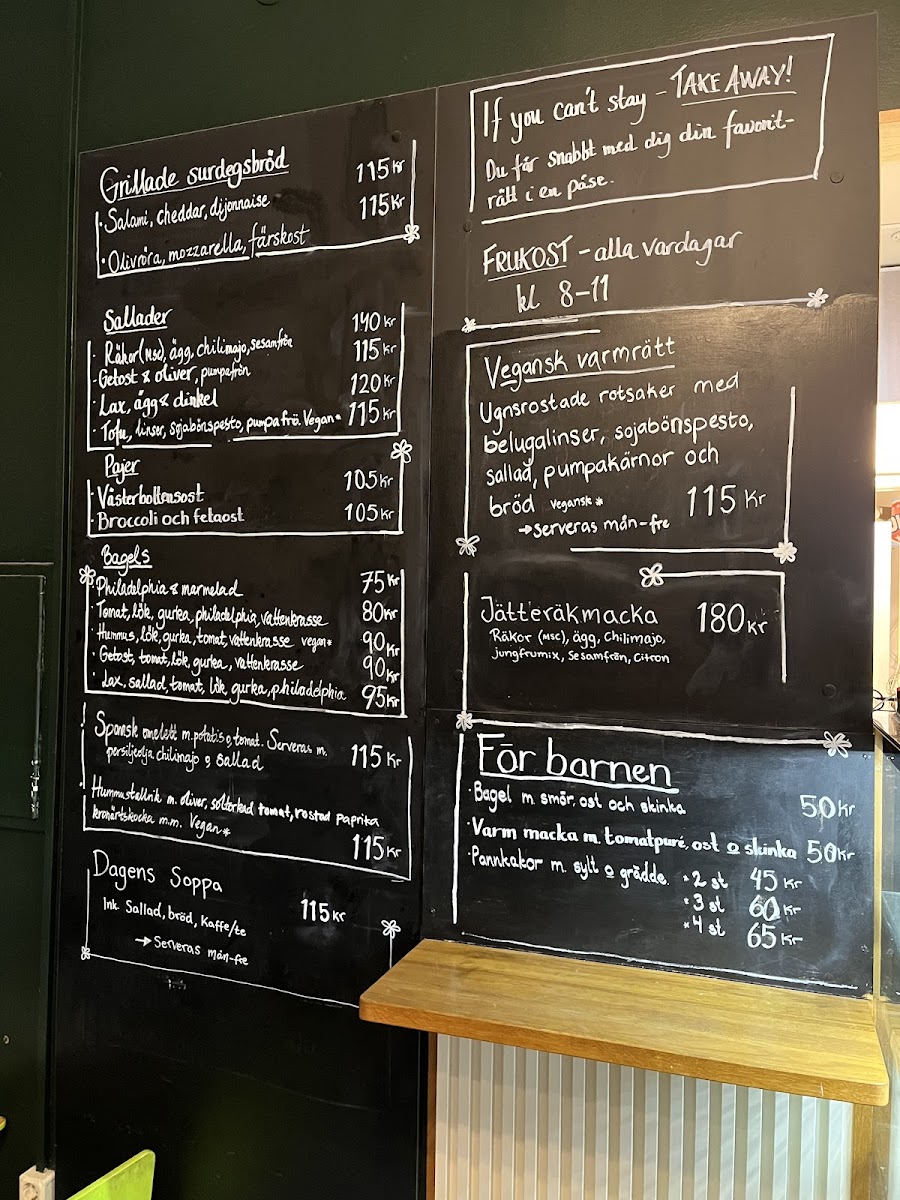 Grillade surdegsbröd
· Salami, cheddar, dijonnaise 115 Kr
· Olivröra, mozzarella, färskost 115 Kr
Sallader
· Räkor (MSC), ägg, chilimajo, sesamfrön 140 Kr
· Getost & oliver, pumpafrön 115 Kr
· Lax, ägg & dinkel 120 Kr
· Tofu, linser, sojabönspesto, pumpafrö. Vegan* 115 Kr
Pajer
· Västerbottensost 105 Kr
· Broccoli och fetaost 105 Kr
Bagels
· Philadelphia & marmelad 75 Kr
· Tomat, lök, gurka, philadelphia, vattenkrasse 80 Kr
· Hummus, lök, gurka, tomat, vattenkrasse vegan* 90 Kr
· Getost, tomat, lök, gurka, vattenkrasse 90 Kr
· Lax, sallad, tomat, lök, gurka, philadelphia 95 Kr
Spansk omelett m. potatis o, tomat. Serveras m.
persiljeolja, chilimajo o sallad 115 Kr
· Hummustallrik m. oliver, soltorkad tomat, rostad paprika
kronärtskocka m.m. Vegan*
115 Kr
Dagens Soppa
Ink. Sallad, bröd, Kaffe/te 115 Kr
→ Serveras mån-fre
If you can't stay - TAKE AWAY!
Du får snabbt med dig din favorit-
rätt i en påse.
FRUKOST - alla vardagar
kl 8-11
Vegansk varmrätt
Ugnsrostade rotsaker med
belugalinser, sojabönspesto,
sallad, pumpakärnor och
bröd vegansk * 115 Kr
→ serveras mån-fre
Jätteräkmacka 180 Kr
Räkor (MSC), ägg, Chilimajo,
jungfrumix, Sesamfrön, Citron
För barnen
· Bagel m smör, ost och skinka 50 Kr
· Varm macka m. tomatpuré, ost o skinka 50 Kr
· Pannkakor m. sylt o grädde. * 2 st 45 Kr
* 3 st 60 Kr
* 4 st 65 Kr